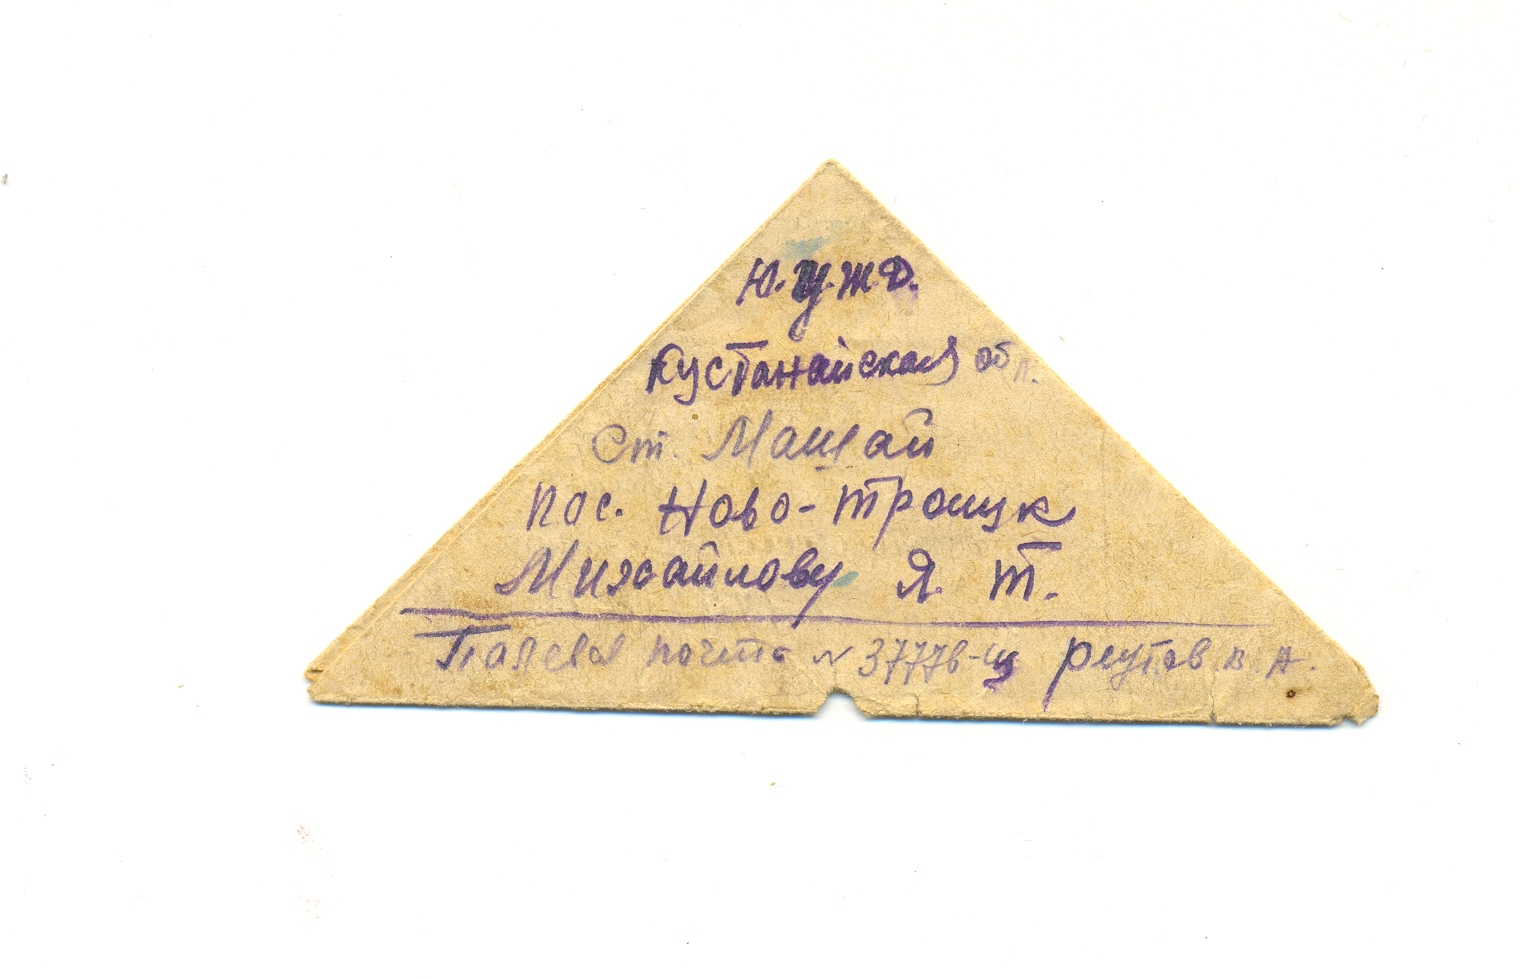 Ю.У.Ж.Д.
Кустанайская обл.
Ст. Машай
пос. Ново-Троицк
Михайлову Я. Т.
Палева почта № 37776-щ Реутов В. А.